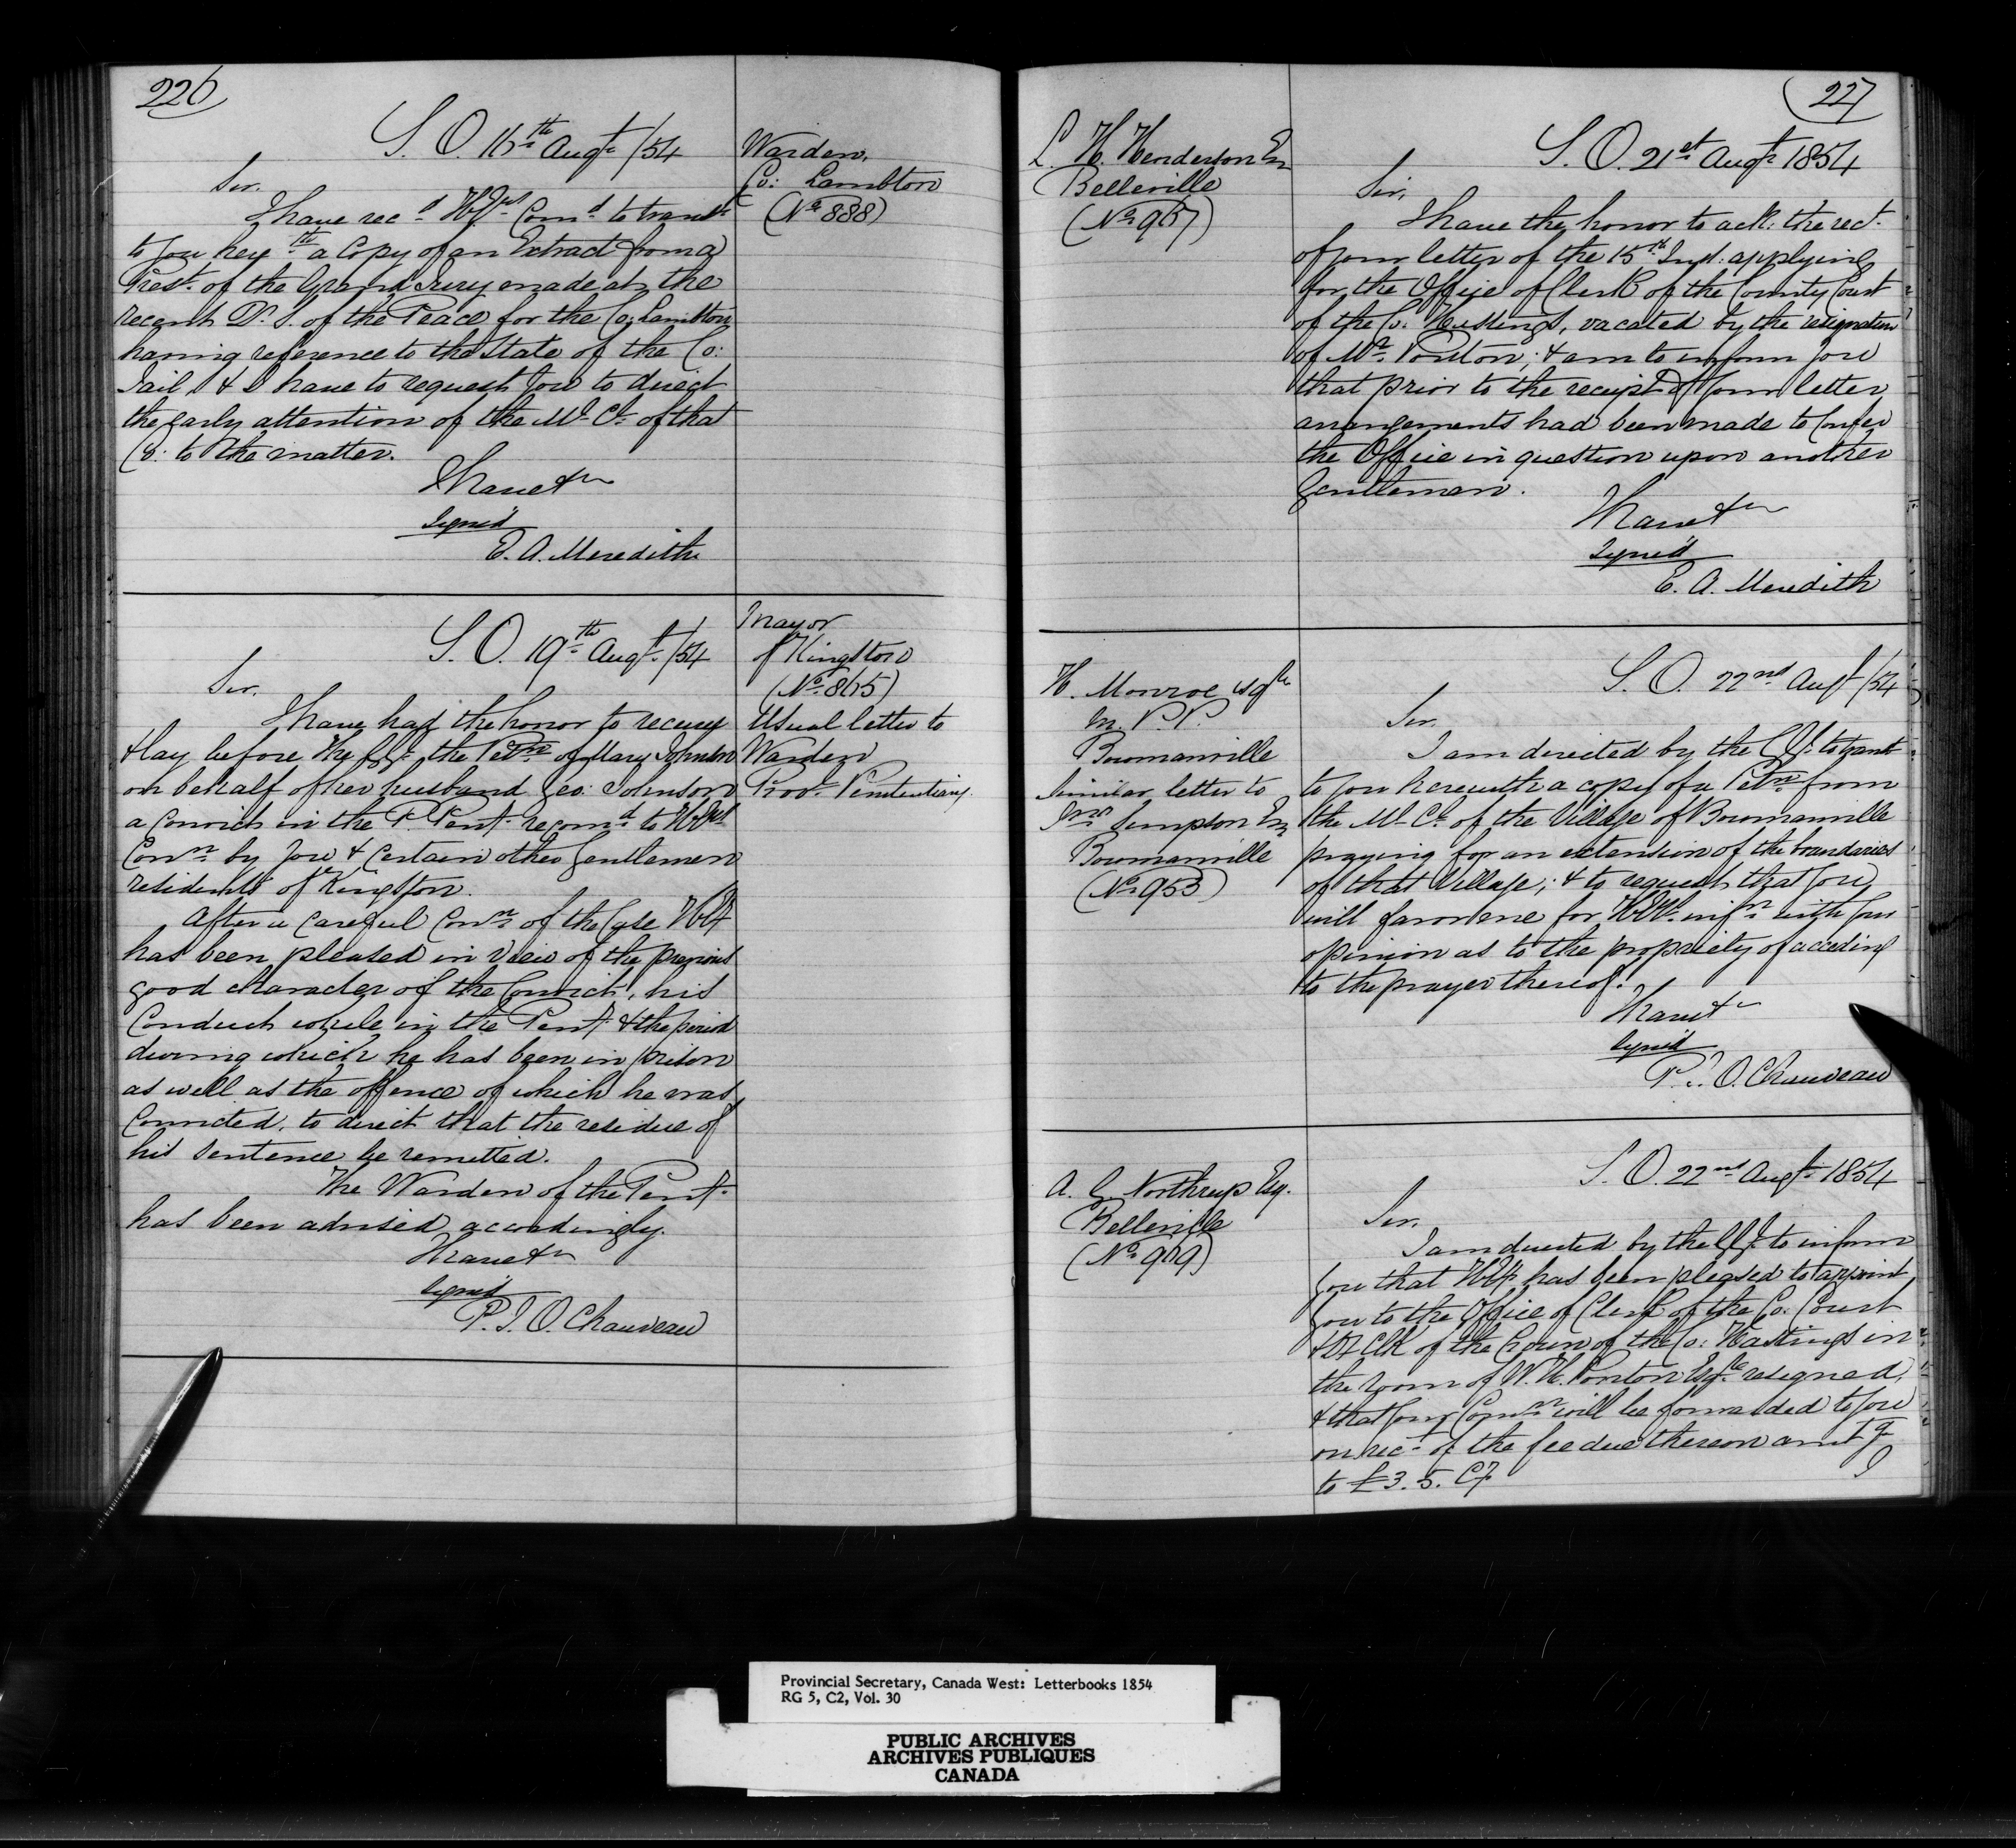 226
S. O. 16th Augt /54
Warden,
Co: Lambton
(No 888)
Sir,
I have recd HEys Comd to transt
to you herewth a Copy of an Extract from a
Prest. of the Grand Jury made at the
recent Q. S. of the Peace for the Co: Lambton
having reference to the State of the Co:
Jail & I have to request you to direct
the early attention of the Ml Cl of that
Co: to the matter.
I have &c
Signed
E. A. Meredith
S. O. 19th Augt /54
Mayor
of Kingston
(No 865)
Usual letter to
Warden
Provl Penitentiary.
Sir,
I have had the honor to receive
& lay before the GG: the Petn of Mary Johnson
on behalf of her husband Geo: Johnson
a Convict in the P. Pent. recomd to HEys
Conn by you & Certain other Gentlemen
residents of Kingston.
After a Careful Conn of the Case HEy
has been pleased in view of the previous
good character of the Convict, his
Conduct while in the Pent. & the period
during which he has been in prison
as well as the offence of which he was
Convicted, to direct that the residue of
his sentence be remitted.
The Warden of the Pent.
has been advised accordingly.
I have &c
Signed
P. J. O. Chauveau
227
L. H. Henderson Esq
Belleville
(No 967)
S. O. 21st Augt 1854
Sir,
I have the honor to ack: the rect.
of your letter of the 15th Inst. applying
for the Office of Clerk of the County Court
of the Co: Hastings, vacated by the resignation
of Mr. Ponton; & am to inform you
that prior to the receipt of your letter
arrangements had been made to Confer
the Office in question upon another
Gentleman.
I have &c
Signed
E. A. Meredith
H. Monroe Esqre
M. P. P.
Bowmanville
Similar letter to
Jno Simpson Esq
Bowmanville
(No 953)
S. O. 22nd Augt /54
Sir,
I am directed by the GG: to transt
to you herewith a copy of a Petn from
the Ml Cl of the Village of Bowmanville
praying for an extension of the boundaries
of that Village; & to request that you
will favor me for HEys infn with your
opinion as to the propriety of acceding
to the prayer thereof.
I have &c
Signed
P. J. O. Chauveau
A. G. Northrup Esq.
Belleville
(No 969)
S. O. 22nd Augt 1854
Sir,
I am directed by the GG: to inform
you that HEy has been pleased to appoint
you to the Office of Clerk of the Co: Court
& Dy Clk of the Crown of the Co: Hastings in
the room of W. H. Ponton Esqre resigned,
& that your Comn will be forwarded to you
on rect of the fee due thereon amtg
to £3. 5. Cy
I
Provincial Secretary, Canada West: Letterbooks 1854
RG 5, C2, Vol. 30
PUBLIC ARCHIVES
ARCHIVES PUBLIQUES
CANADA